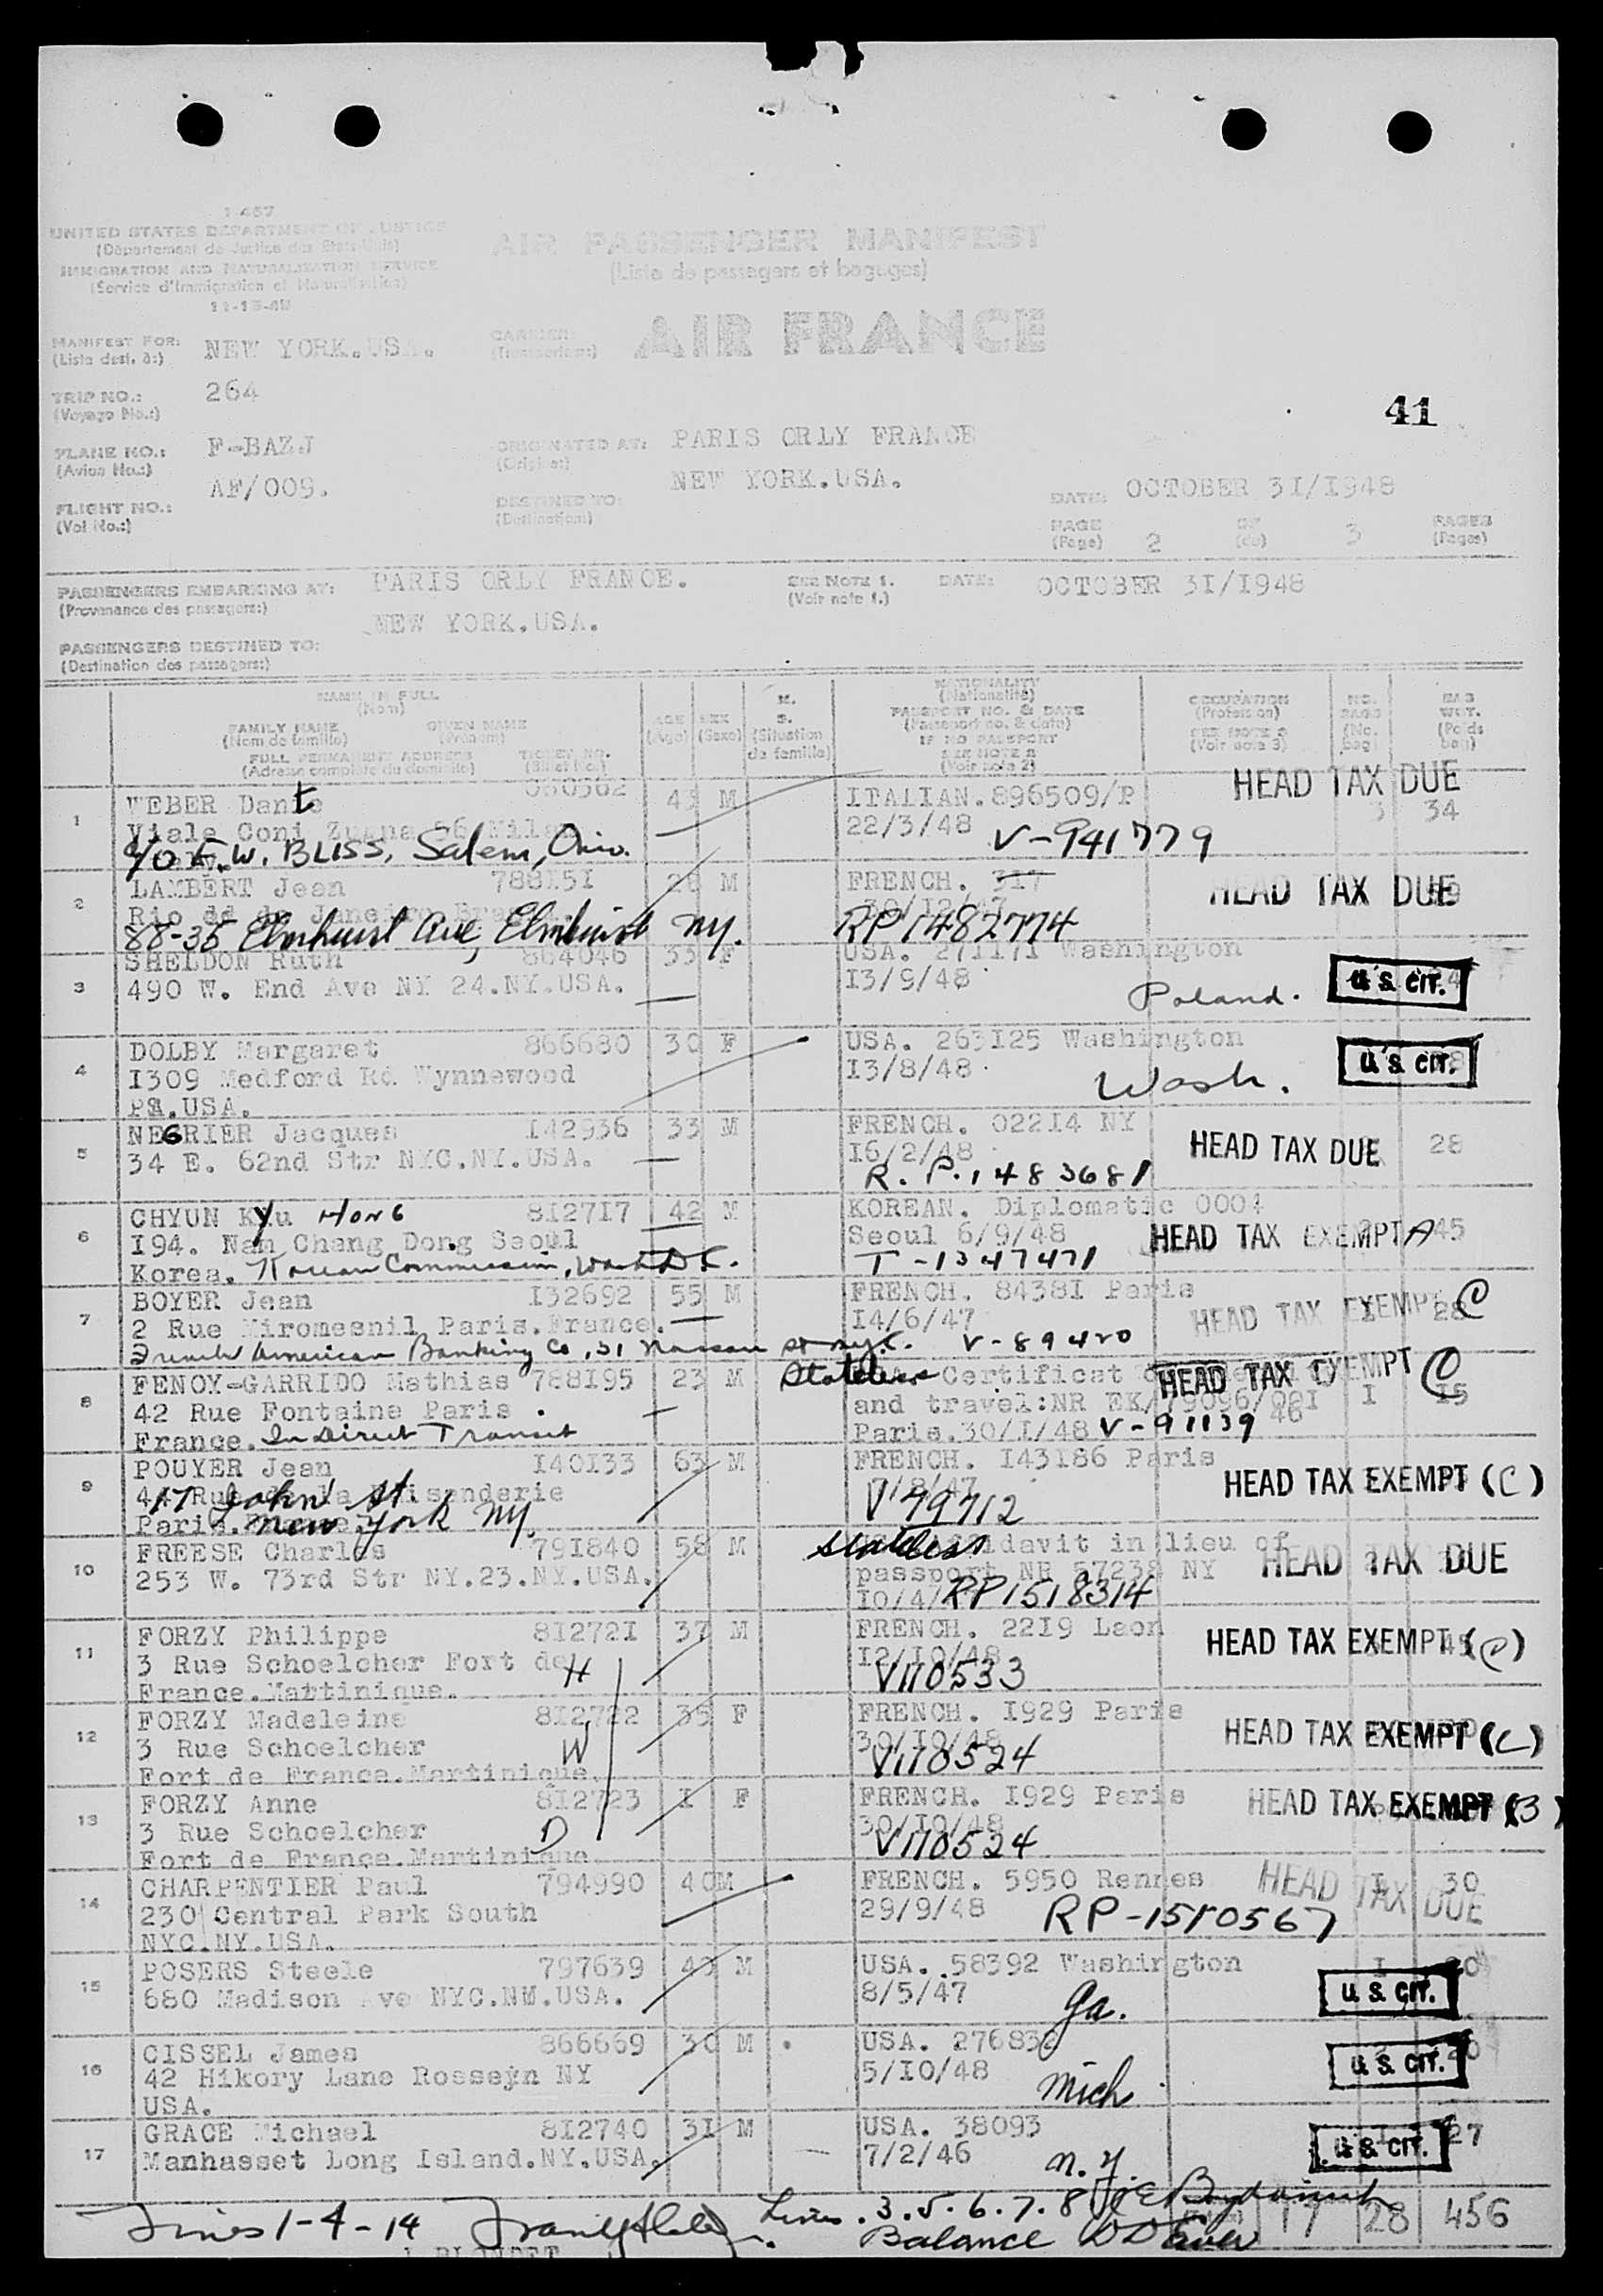 I-467
UNITED STATES DEPARTMENT OF JUSTICE
(Département de Justice des Etats-Unis)
IMMIGRATION AND NATURALIZATION SERVICE
(Service d'Immigration et Naturalisation)
11-15-45
AIR PASSENGER MANIFEST
(Liste de passagers et bagages)
MANIFEST FOR: NEW YORK.USA.
(Liste dest. à:)
CARRIER: AIR FRANCE
(Transporteur:)
TRIP NO.: 264
(Voyage No.:)
41
PLANE NO.: F-BAZJ
(Avion No.:)
ORIGINATED AT: PARIS ORLY FRANCE
(Origine:)
FLIGHT NO.: AF/009.
(Vol No.:)
DESTINED TO: NEW YORK.USA.
(Destination:)
DATE: OCTOBER 3I/I948
PAGE 2 OF 3 PAGES
(Page) (de) (Pages)
PASSENGERS EMBARKING AT: PARIS ORLY FRANCE.
(Provenance des passagers:)
SEE NOTE 1. DATE: OCTOBER 3I/I948
(Voir note 1.)
PASSENGERS DESTINED TO: NEW YORK.USA.
(Destination des passagers:)
NAME IN FULL
(Nom)
FAMILY NAME GIVEN NAME
(Nom de famille) (Prénom)
FULL PERMANENT ADDRESS TICKET NO.
(Adresse complète du domicile) (Billet No.)
AGE SEX M. S.
(Age) (Sexe) (Situation de famille)
NATIONALITY
(Nationalité)
PASSPORT NO. & DATE
(Passeport no. & date)
IF NO PASSPORT
SEE NOTE 2
(Voir note 2)
OCCUPATION
(Profession)
SEE NOTE 3
(Voir note 3)
NO. BAGS
(No. bag)
BAG WGT.
(Poids bag)
HEAD TAX DUE
1 WEBER Dante 43 M ITALIAN.896509/P 3 34
Viale Coni Zugna 56 Milan 22/3/48 V-941779
c/o E.W. BLISS, Salem, Ohio.
2 LAMBERT Jean 788I5I 28 M FRENCH. 317 HEAD TAX DUE
Rio de Janeiro
88-35 Elmhurst Ave, Elmhurst NY. RP 1482774
3 SHELDON Ruth 864046 33 F USA. 27II7I Washington
490 W. End Ave NY 24.NY.USA. I3/9/48 Poland. U.S. CIT.
4 DOLBY Margaret 866680 30 F USA. 263I25 Washington
I309 Medford Rd Wynnewood I3/8/48 Wash. U.S. CIT.
PA.USA.
5 NEGRIER Jacques I42936 33 M FRENCH. 022I4 NY HEAD TAX DUE 28
34 E. 62nd Str NYC.NY.USA. I6/2/48
R.P.1483681
6 CHYUN Kyu HONG 8I27I7 42 M KOREAN. Diplomatic 0004
I94. Nam Chang Dong Seoul Seoul 6/9/48 HEAD TAX EXEMPT A 45
Korea. Korean Commission, Wash D.C. T-1347471
7 BOYER Jean I32692 55 M FRENCH. 8438I Paris
2 Rue Miromesnil Paris.France. I4/6/47 HEAD TAX EXEMPT C 28
French American Banking Co, 31 Nassau St NYC. V-89420
8 FENOY-GARRIDO Mathias 788I95 23 M Stateless Certificat HEAD TAX EXEMPT C
42 Rue Fontaine Paris and travel:NR EK/79096/ I I5
France. In Direct Transit Paris.30/I/48 V-91139 46
9 POUYER Jean I40I33 63 M FRENCH. I43I86 Paris
44 Rue de la Faisanderie 7/8/47 HEAD TAX EXEMPT (C)
Paris. 17 John St. New York NY. V79712
10 FREESE Charles 79I840 58 M Stateless Affidavit in lieu of
253 W. 73rd Str NY.23.NY.USA. passport NR 57238 NY HEAD TAX DUE
I0/4/ RP1518314
11 FORZY Philippe 8I272I 37 M FRENCH. 22I9 Laon
3 Rue Schoelcher Fort de H I2/I0/48 HEAD TAX EXEMPT (C)
France.Martinique. V110533
12 FORZY Madeleine 8I2722 35 F FRENCH. I929 Paris
3 Rue Schoelcher W 30/I0/48 HEAD TAX EXEMPT (C)
Fort de France.Martinique. V110524
13 FORZY Anne 8I2723 I F FRENCH. I929 Paris
3 Rue Schoelcher D 30/I0/48 HEAD TAX EXEMPT (B)
Fort de France.Martinique V110524
14 CHARPENTIER Paul 794990 40M FRENCH. 5950 Rennes I 30
230 Central Park South 29/9/48 RP-1510567 HEAD TAX DUE
NYC.NY.USA.
15 POSERS Steele 797639 43 M USA. 58392 Washington I 20
680 Madison Ave NYC.NM.USA. 8/5/47 Ga. U.S. CIT.
16 CISSEL James 866669 30 M USA. 27683
42 Hikory Lane Rosseyn NY 5/I0/48 Mich U.S. CIT.
USA.
17 GRACE Michael 8I2740 3I M USA. 38093 27
Manhasset Long Island.NY.USA. 7/2/46 N.Y. U.S. CIT.
Lines 1-4-14 Lines. 3.5.6.7.8 17 28 456
Balance